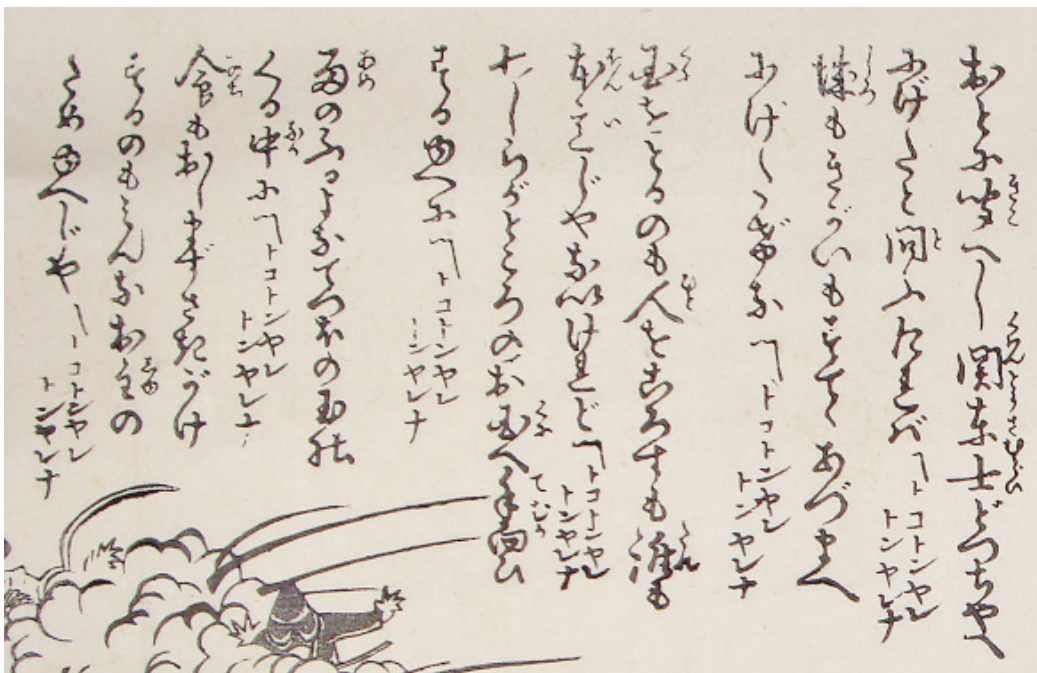 おとに聞へし関東士どつちやへ
にげたと問ふたれバ〽トコトンヤレトンヤレナ
城もきがいもすてゝあづまへ
にげたげな〽トコトンヤレトンヤレナ
国をとるのも人をころすも誰も
本いじやないけれど〽トコトンヤレトンヤレナ
わしらがところのお国へ手向ひ
するゆへに〽トコトンヤレトンヤレナ
雨のふるよなてつほの玉の
くる中に〽トコトンヤレトンヤレナ
命もおしまずさきがけ
するのもみんなお主の
ためゆへじや〽トコトンヤレトンヤレナ